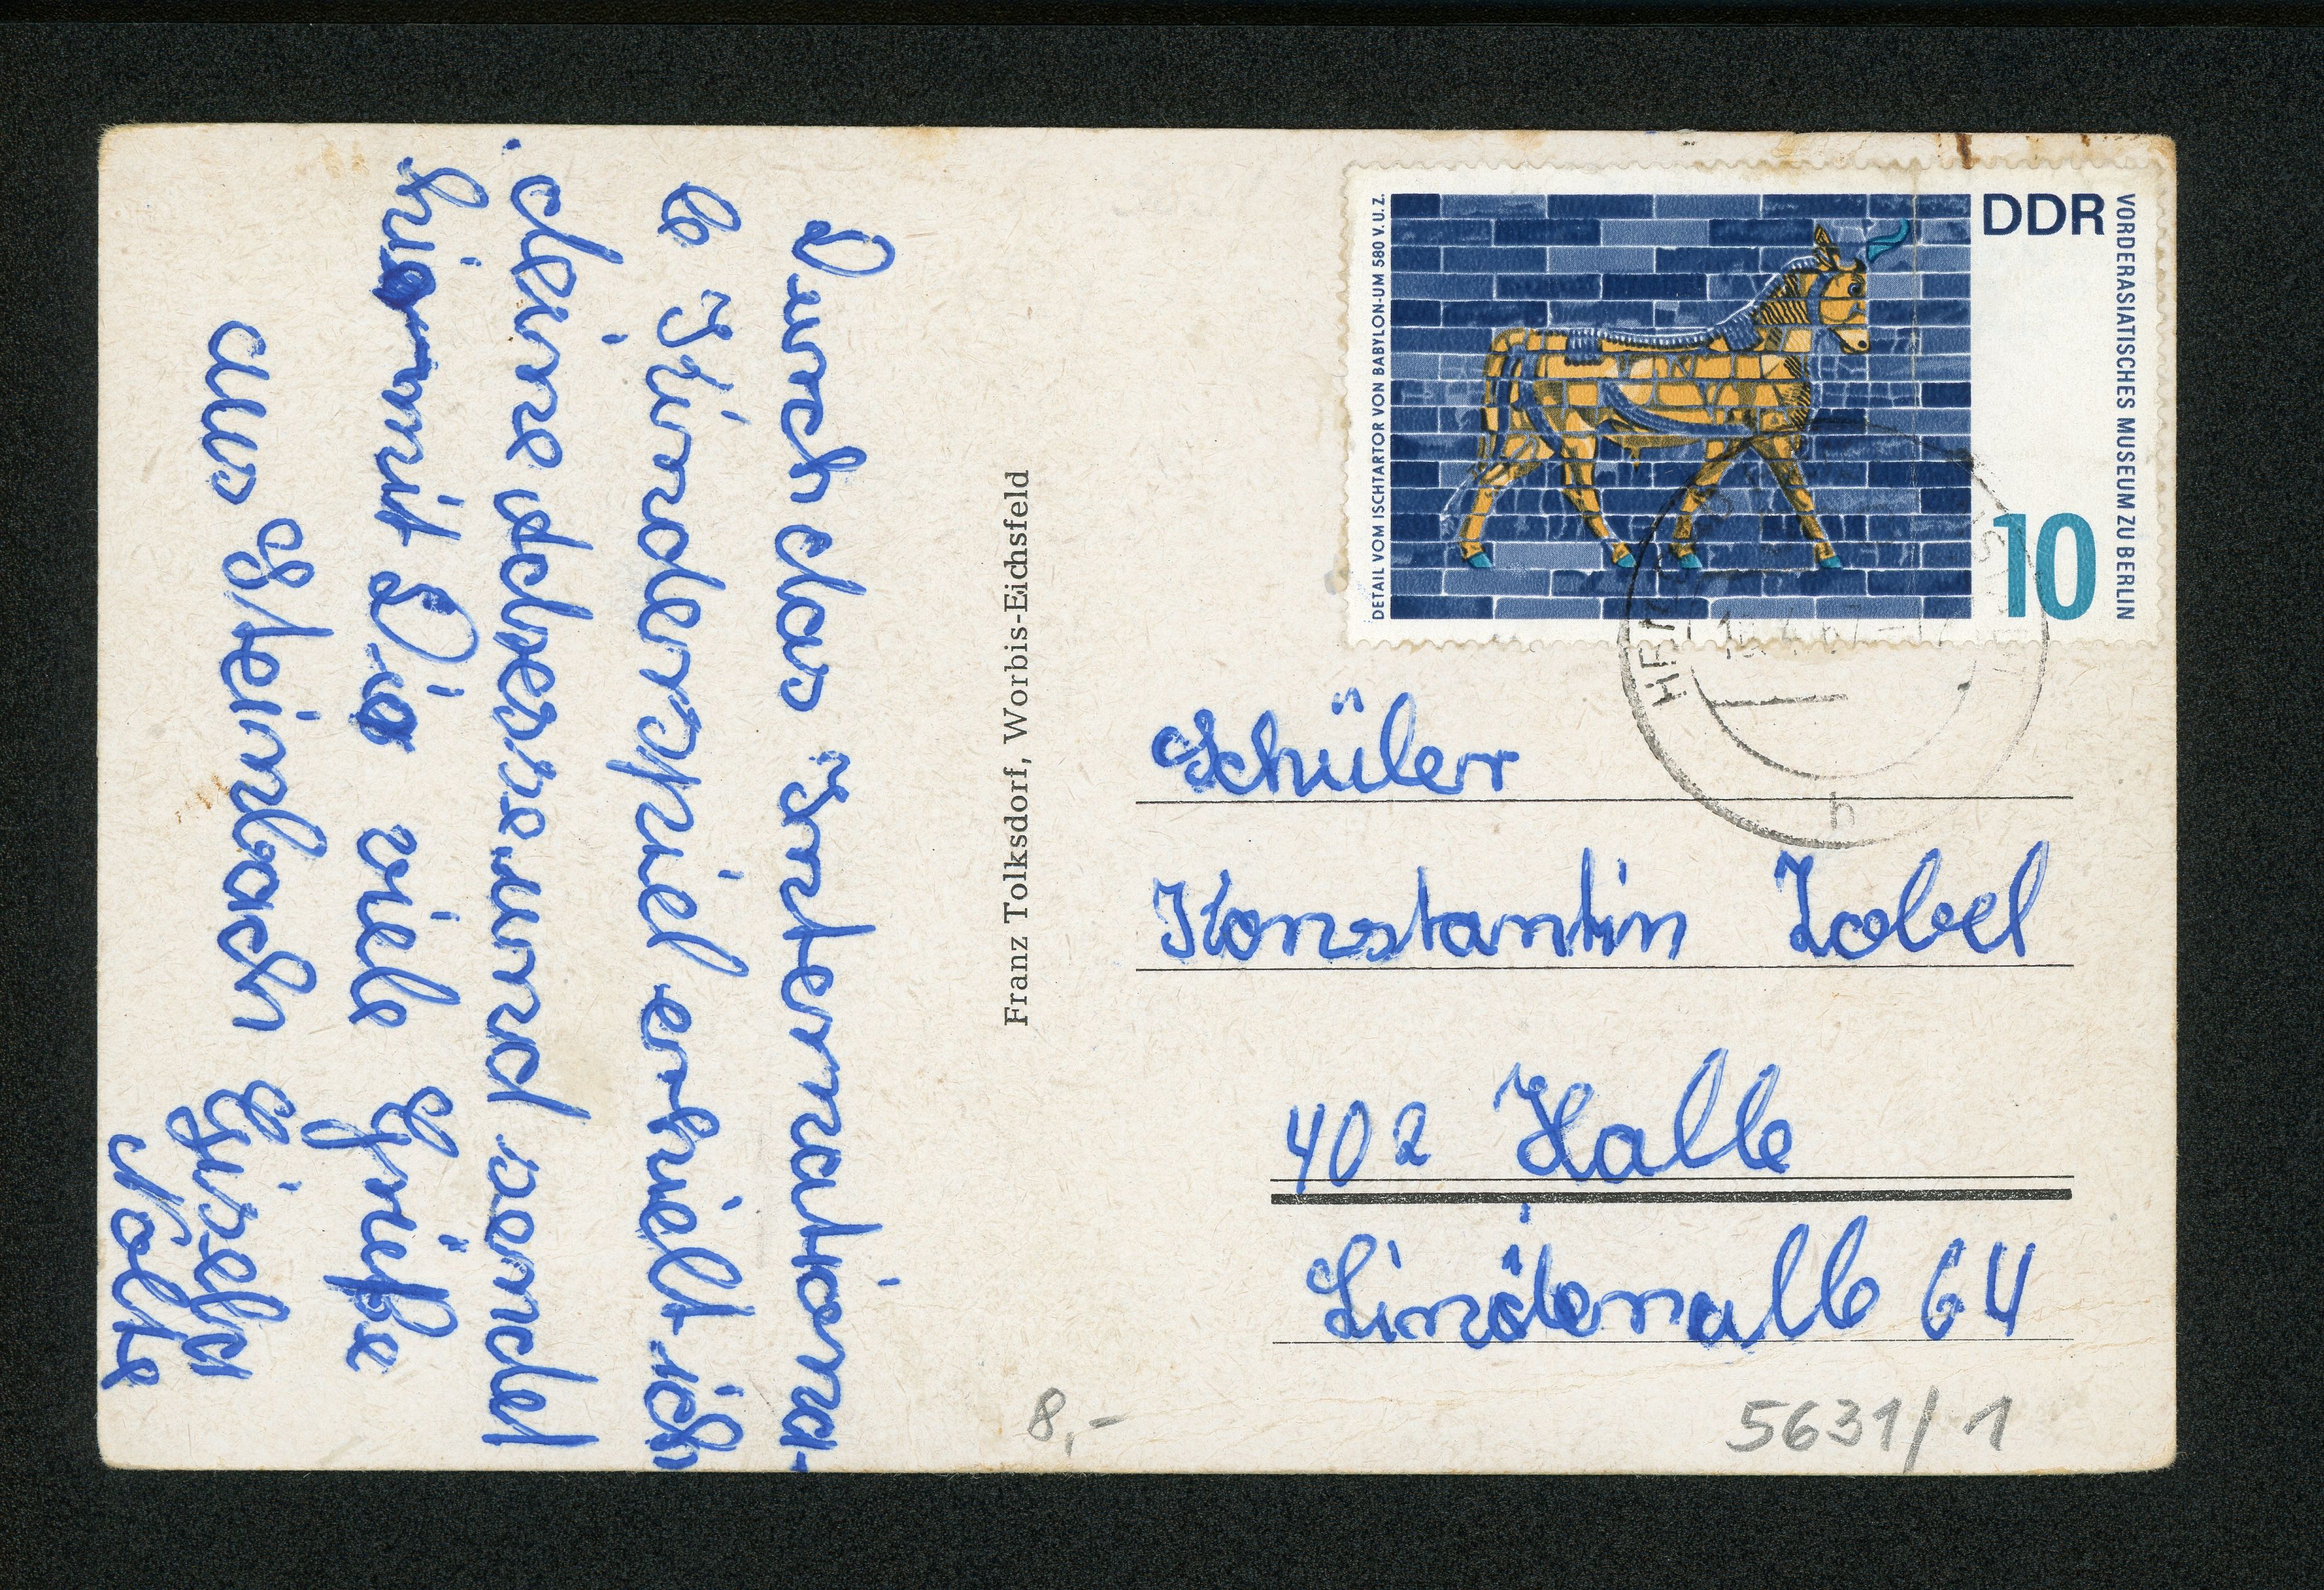 Durch das Internationa-
le Kinderspiel erhielt ich
deine Adresse und sendet
hiermit Dia viele Grieße
aus Steinbach Gisela
Nolte
Franz Tolksdorf, Worbis-Eichsfeld
DETAIL VOM ISCHTARTOR VON BABYLON-UM 580 V.U.Z.
DDR
VORDERASIATISCHES MUSEUM ZU BERLIN
10
h
Schüler
Konstantin Zobel
402 Halle
Lindenalle 64
8,-
5631/1